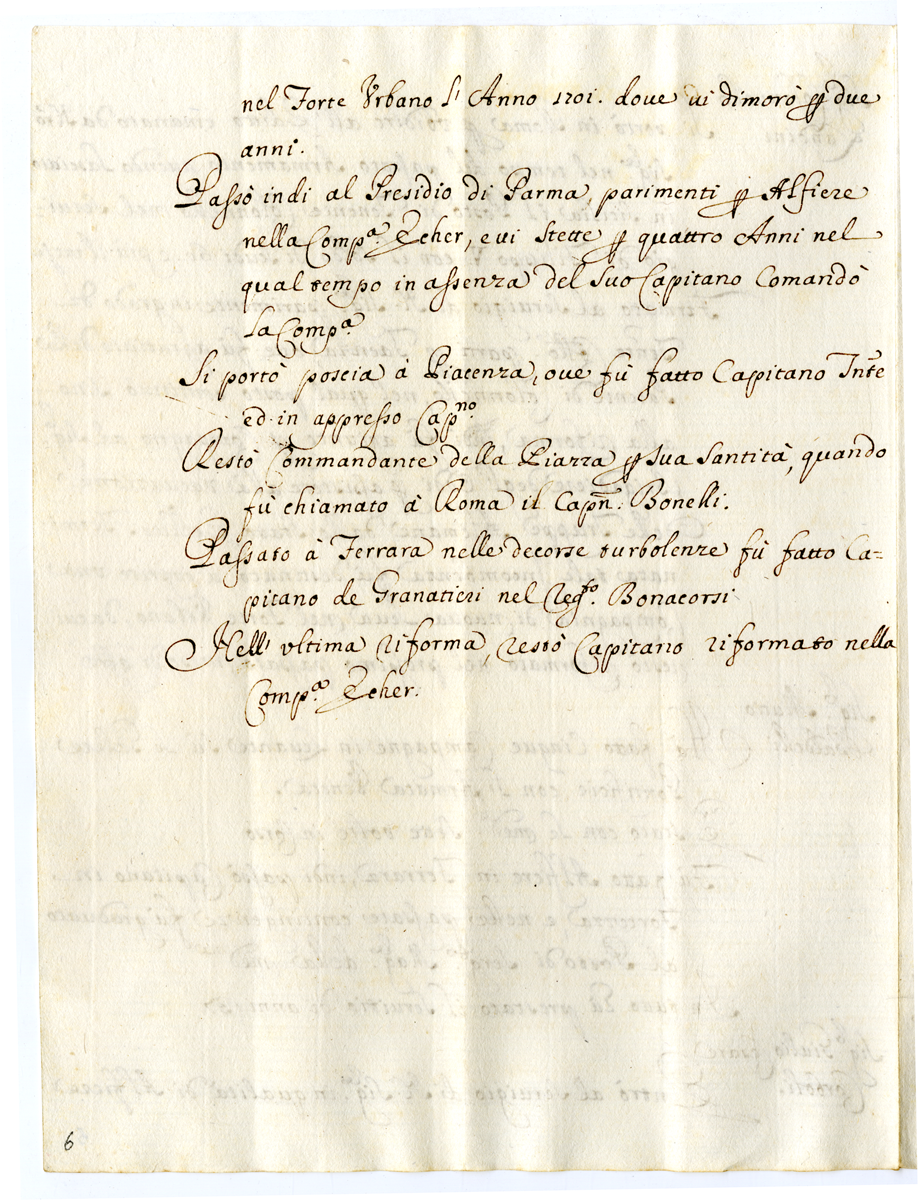 nel Forte Vrbano l' Anno 1701. doue ui dimorò ꝑ due
anni.
Passò indi al Presidio di Parma, parimenti ꝑ Alfiere
nella Comp.ª Zeher, e ui stette ꝑ quattro Anni nel
qual tempo in assenza del suo Capitano Comandò
la Comp.ª
Si portò poscia à Piacenza, oue fù fatto Capitano Tnte
ed in appresso Cap.no
Restò Commandante della Piazza ꝑ sua Santità, quando
fù chiamato à Roma il Capn. Bonelli.
Passato à Ferrara nelle decorse turbolenze fù fatto Ca=
pitano de Granatieri nel Reg.to Bonacorsi
Nell' vltima riforma, restò Capitano riformato nella
Comp.ª Zeher.
6